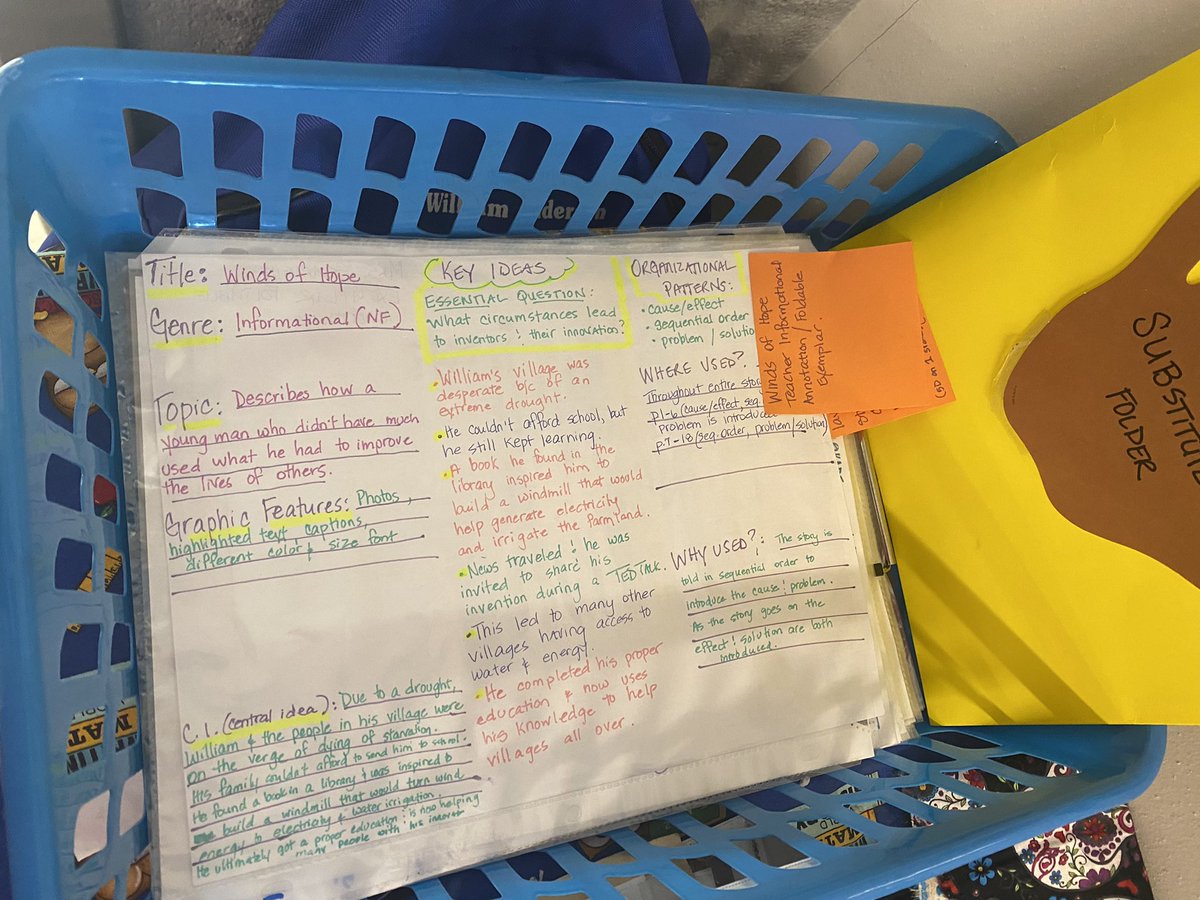 Title: Winds of Hope
Genre: Informational (NF)
Topic: Describes how a
young man who didn't have much
used what he had to improve
the lives of others.
Graphic Features: Photos,
highlighted text, captions,
different color & size font
C.I. (central idea): Due to a drought,
William & the people in his village were
on the verge of dying of starvation.
His family couldn't afford to send him to school.
He found a book in a library & was inspired to
build a windmill that would turn wind
energy to electricity & water irrigation.
He ultimately got a proper education & is now helping
many people with his
KEY IDEAS
ESSENTIAL QUESTION:
What circumstances lead
to inventors & their innovation?
• William's village was
desperate b/c of an
extreme drought.
• He couldn't afford school, but
he still kept learning.
• A book he found in the
library inspired him to
build a windmill that would
help generate electricity
and irrigate the farmland.
• News traveled & he was
invited to share his
invention during a TED TALK.
• This led to many other
villages having access to
water & energy.
• He completed his proper
education & now uses
his knowledge to help
villages all over.
ORGANIZATIONAL
PATTERNS:
• cause/effect
• sequential order
• problem / solution
WHERE USED?
Throughout entire
p1-6 (cause/effect, seq.
problem is introduced
p.7-18 (seq. order, problem/solution)
WHY USED?: The story is
told in sequential order to
introduce the cause & problem.
As the story goes on the
effect & solution are both
introduced.
Winds of Hope
Teacher Informational
Annotation / Foldable
Exemplar.
SUBSTITUTE
FOLDER